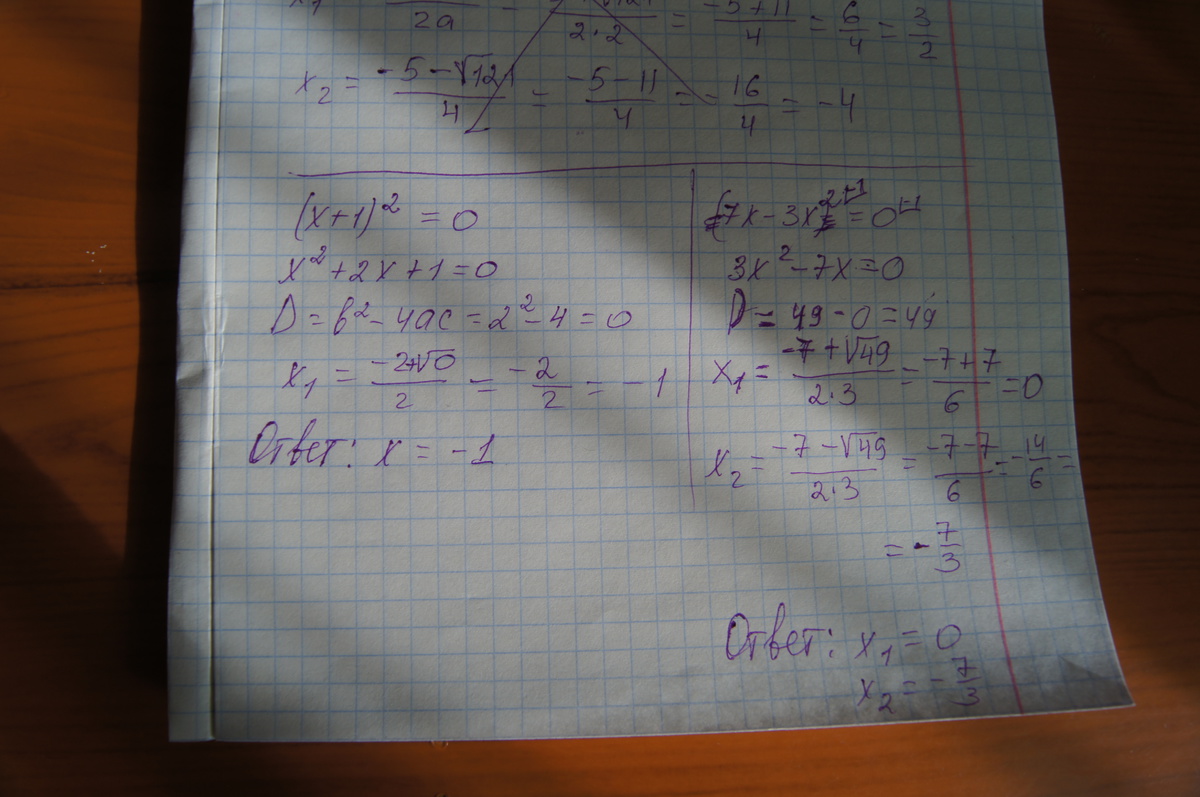 2a 2·2 = -5+11/4 = 6/4 = 3/2
x₂ = -5-√121/4 = -5-11/4 = -16/4 = -4
(x+1)² = 0
x²+2x+1=0
D=b²-4ac=2²-4=0
x₁ = -2+√0/2 = -2/2 = -1
Ответ: x = -1
7x-3x² = 0
3x²-7x=0
D = 49-0=49
x₁ = -7+√49/2·3 = -7+7/6 = 0
x₂ = -7-√49/2·3 = -7-7/6 = -14/6 =
= -7/3
Ответ: x₁ = 0
x₂ = -7/3